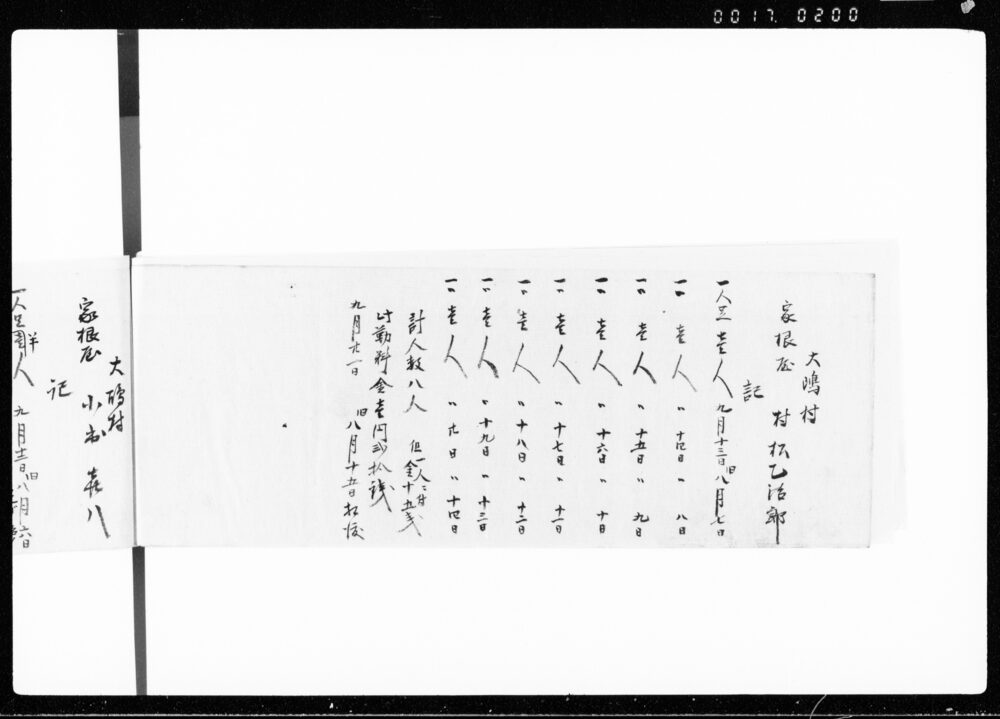 0017 0200
大嶋村
家根屋 村松乙治郎
記
一人足壱人 九月十三日 旧八月七日
一〃壱人 〃十四日 〃八日
一〃壱人 〃十五日 〃九日
一〃壱人 〃十六日 〃十日
一〃壱人 〃十七日 〃十一日
一〃壱人 〃十八日 〃十二日
一〃壱人 〃十九日 〃十三日
一〃壱人 〃廿日 〃十四日
計人数八人 但一人ニ付金十五銭
此勤料金壱円弐拾銭
九月廿一日 旧八月十五日払渡
大嶋村
家根屋 小 喜八
記
一人足 人 九月十二日 旧八月六日